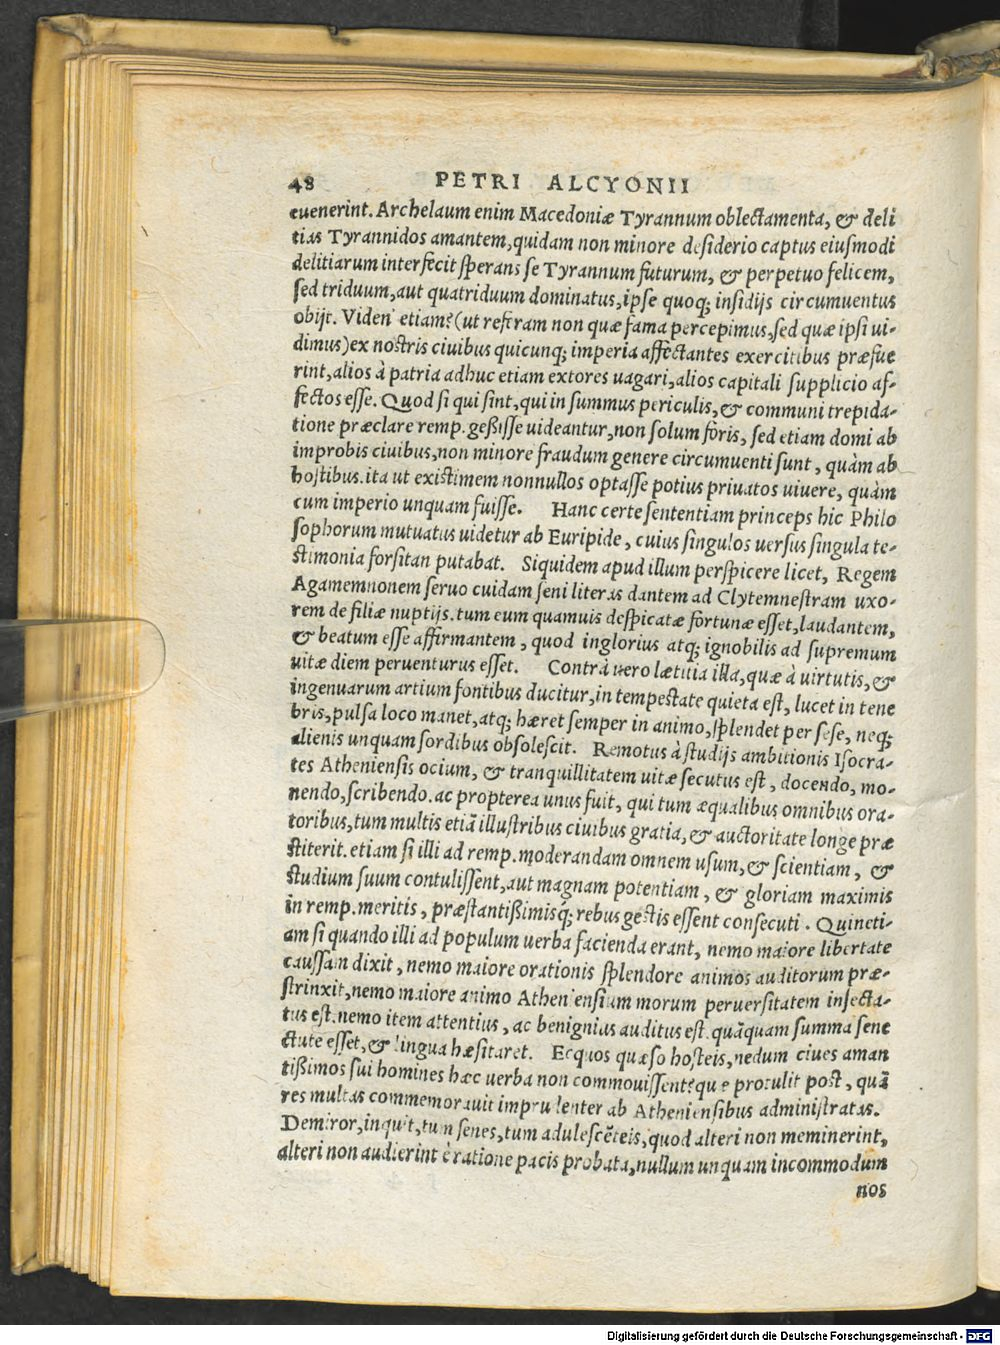 48 PETRI ALCYONII
euenerint. Archelaum enim Macedoniæ Tyrannum oblectamenta, & deli
tias Tyrannidos amantem, quidam non minore desiderio captus eiusmodi
delitiarum interfecit sperans se Tyrannum futurum, & perpetuo felicem,
sed triduum, aut quatriduum dominatus, ipse quoq; insidijs circumuentus
obijt. Viden etiam? (ut referam non quæ fama percepimus, sed quæ ipsi ui-
dimus) ex nostris ciuibus quicunq; imperia affectantes exercitibus præfue
rint, alios à patria adhuc etiam extores uagari, alios capitali supplicio af-
fectos esse. Quod si qui sint, qui in summus periculis, & communi trepida-
tione præclare remp. geßisse uideantur, non solum foris, sed etiam domi ab
improbis ciuibus, non minore fraudum genere circumuenti sunt, quàm ab
hostibus. ita ut existimem nonnullos optasse potius priuatos uiuere, quàm
cum imperio unquam fuisse. Hanc certe sententiam princeps hic Philo
sophorum mutuatus uidetur ab Euripide, cuius singulos uersus singula te-
stimonia forsitan putabat. Siquidem apud illum perspicere licet, Regem
Agamemnonem seruo cuidam seni literas dantem ad Clytemnestram uxo-
rem de filiæ nuptijs. tum eum quamuis despicatæ fortunæ esset, laudantem,
& beatum esse affirmantem, quod inglorius atq; ignobilis ad supremum
uitæ diem peruenturus esset. Contrà uero lætitia illa, quæ à uirtutis, &
ingenuarum artium fontibus ducitur, in tempestate quieta est, lucet in tene
bris, pulsa loco manet, atq; hæret semper in animo, splendet per sese, neq;
alienis unquam sordibus obsolescit. Remotus à studijs ambitionis Isocra-
tes Atheniensis ocium, & tranquillitatem uitæ secutus est, docendo, mo-
nendo, scribendo. ac propterea unus fuit, qui tum æqualibus omnibus ora-
toribus, tum multis etiã illustribus ciuibus gratia, & auctoritate longe præ
stiterit. etiam si illi ad remp. moderandam omnem usum, & scientiam, &
studium suum contulissent, aut magnam potentiam, & gloriam maximis
in remp. meritis, præstantißimisq́; rebus gestis essent consecuti. Quineti-
am si quando illi ad populum uerba facienda erant, nemo maiore libertate
caussam dixit, nemo maiore orationis splendore animos auditorum præ-
strinxit, nemo maiore animo Atheniensium morum peruersitatem insecta-
tus est. nemo item attentius, ac benignius auditus est. quãquam summa sene
ctute esset, & lingua hæsitaret. Ecquos quæso hosteis, nedum ciues aman
tißimos sui homines hæc uerba non commouissent? quæ protulit post, quã
res multas commemorauit imprudenter ab Atheniensibus administratas.
Demiror, inquit, tum senes, tum adulescẽteis, quod alteri non meminerint,
alteri non audierint è ratione pacis probata, nullum unquam incommodum
nos
Digitalisierung gefördert durch die Deutsche Forschungsgemeinschaft - DFG